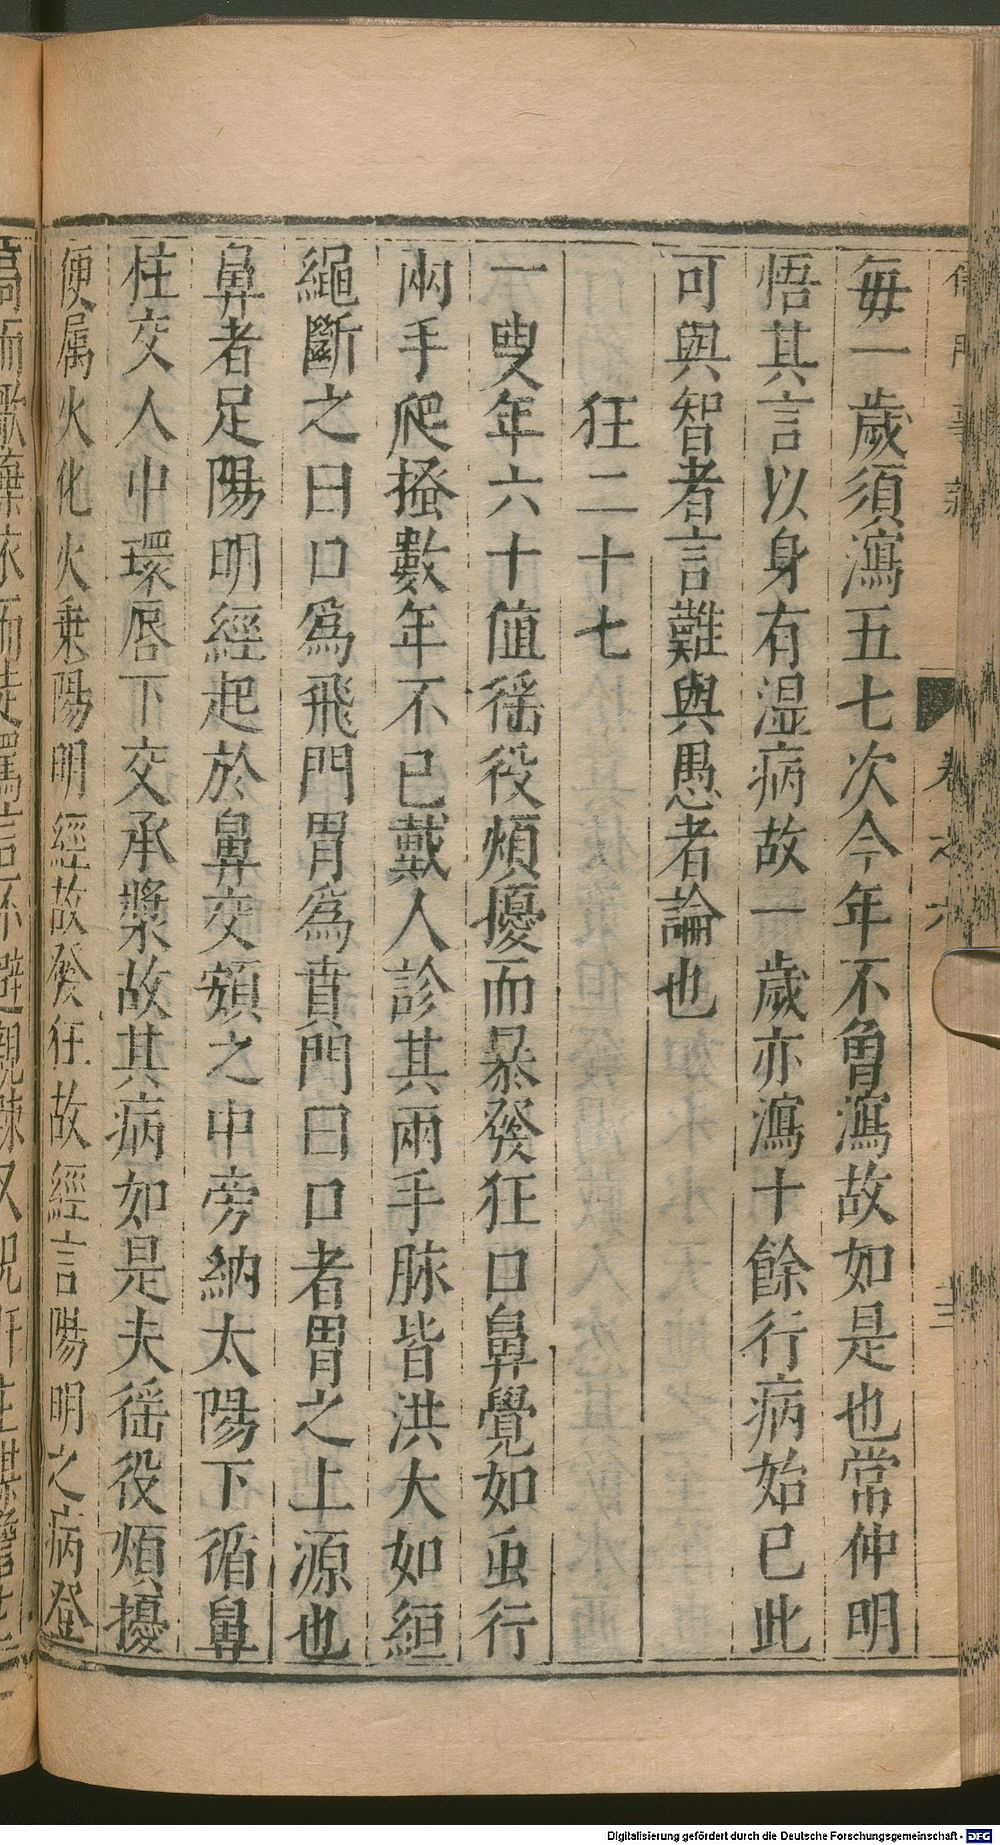 儒門事親
卷之六
毎一歲須瀉五七次今年不曾瀉故如是也常仲明
悟其言以身有湿病故一歲亦瀉十餘行病始已此
可與智者言難與愚者論也
狂二十七
一叟年六十值徭役煩擾而暴發狂口鼻覺如虫行
兩手爬搔數年不已戴人診其兩手脉皆洪大如絙
繩斷之曰口爲飛門胃爲賁門曰口者胃之上源也
鼻者足陽明經起於鼻交頞之中旁納太陽下循鼻
柱交人中環唇下交承漿故其病如是夫徭役煩擾
便属火化火乗陽明經故發狂故經言陽明之病登
Digitalisierung gefördert durch die Deutsche Forschungsgemeinschaft - DFG